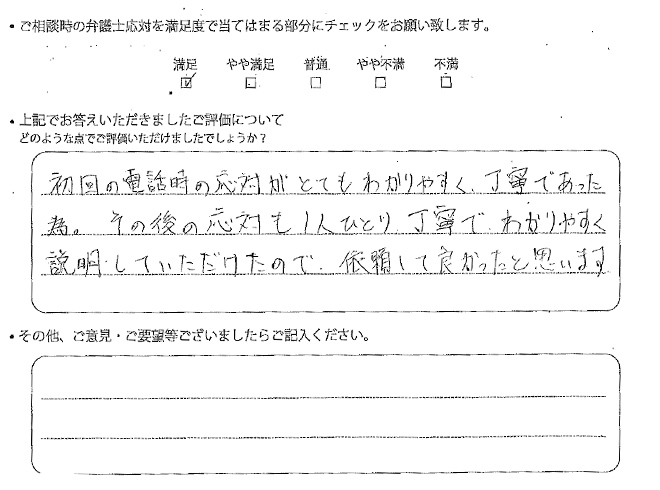 ・ご相談時の弁護士応対を満足度で当てはまる部分にチェックをお願い致します。
満足 やや満足 普通 やや不満 不満
☑ □ □ □ □
・上記でお答えいただきましたご評価について
どのような点でご評価いただけましたでしょうか？
初回の電話時の応対がとてもわかりやすく、丁寧であった
為。その後の応対も1人ひとり、丁寧で、わかりやすく
説明していただけたので、依頼して良かったと思います
・その他、ご意見・ご要望等ございましたらご記入ください。